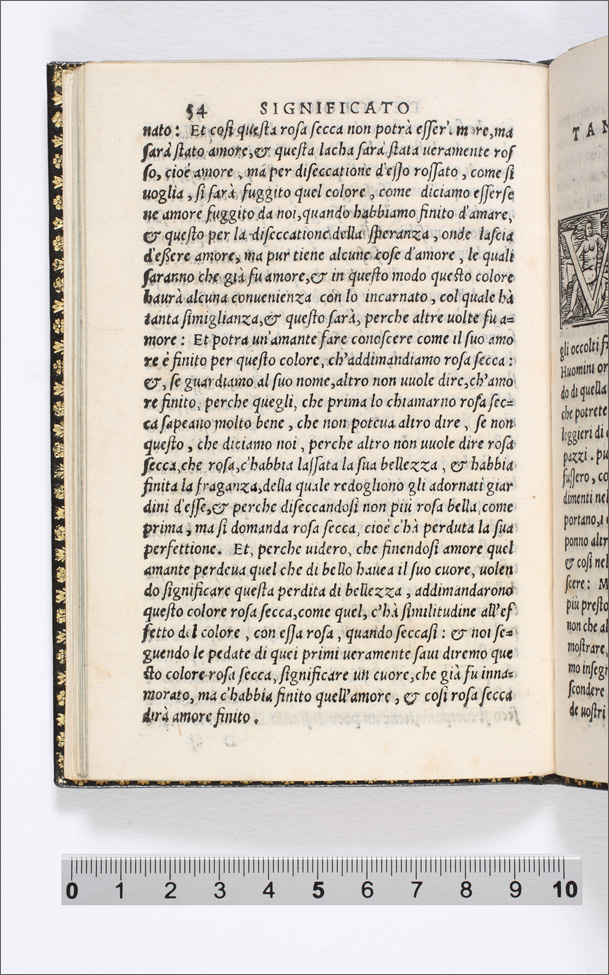 54 SIGNIFICATO
nato: Et così questa rosa secca non potrà esser more, ma
sarà stato amore, & questa lacha sarà stata ueramente ros
so, cioé amore, ma per diseccatione d'esso rossato, come si
uoglia, si sarà fuggito quel colore, come diciamo esserse
ne amore fuggito da noi, quando habbiamo finito d'amare,
& questo per la diseccatione della speranza, onde lascia
d'essere amore, ma pur tiene alcune cose d'amore, le quali
saranno che già fu amore, & in questo modo questo colore
haurà alcuna conuenienza con lo incarnato, col quale hà
tanta simiglianza, & questo sarà, perche altre uolte fu a=
more: Et potra un'amante fare conoscere come il suo amo
re è finito per questo colore, ch'addimandiamo rosa secca:
&, se guardiamo al suo nome, altro non uuole dire, ch'amo
re finito, perche quegli, che prima lo chiamarno rosa sec=
ca sapeano molto bene, che non poteua altro dire, se non
questo, che diciamo noi, perche altro non uuole dire rosa
secca, che rosa, c'habbia lassata la sua bellezza, & habbia
finita la fraganza, della quale redogliono gli adornati giar
dini d'esse, & perche diseccandosi non più rosa bella, come
prima, ma si domanda rosa secca, cioè c'hà perduta la sua
perfettione. Et, perche uidero, che finendosi amore quel
amante perdeua quel che di bello hauea il suo cuore, uolen
do significare questa perdita di bellezza, addimandarono
questo colore rosa secca, come quel, c'hà similitudine all'ef
fetto del colore, con essa rosa, quando seccasi: & noi se=
guendo le pedate di quei primi ueramente saui diremo que
sto colore rosa secca, significare un cuore, che già fu inna=
morato, ma c'habbia finito quell'amore, & così rosa secca
dirà amore finito.
TAN
V
gli occolti
Huomini or
do di quella
che potrete
leggieri di
pazzi. pu
fussero, co
dimenti nel
portano,
ponno altr
& così nel
scere: M
più presto
non che al
mostrare,
mo insegn
scondere
de uostri
0 1 2 3 4 5 6 7 8 9 10